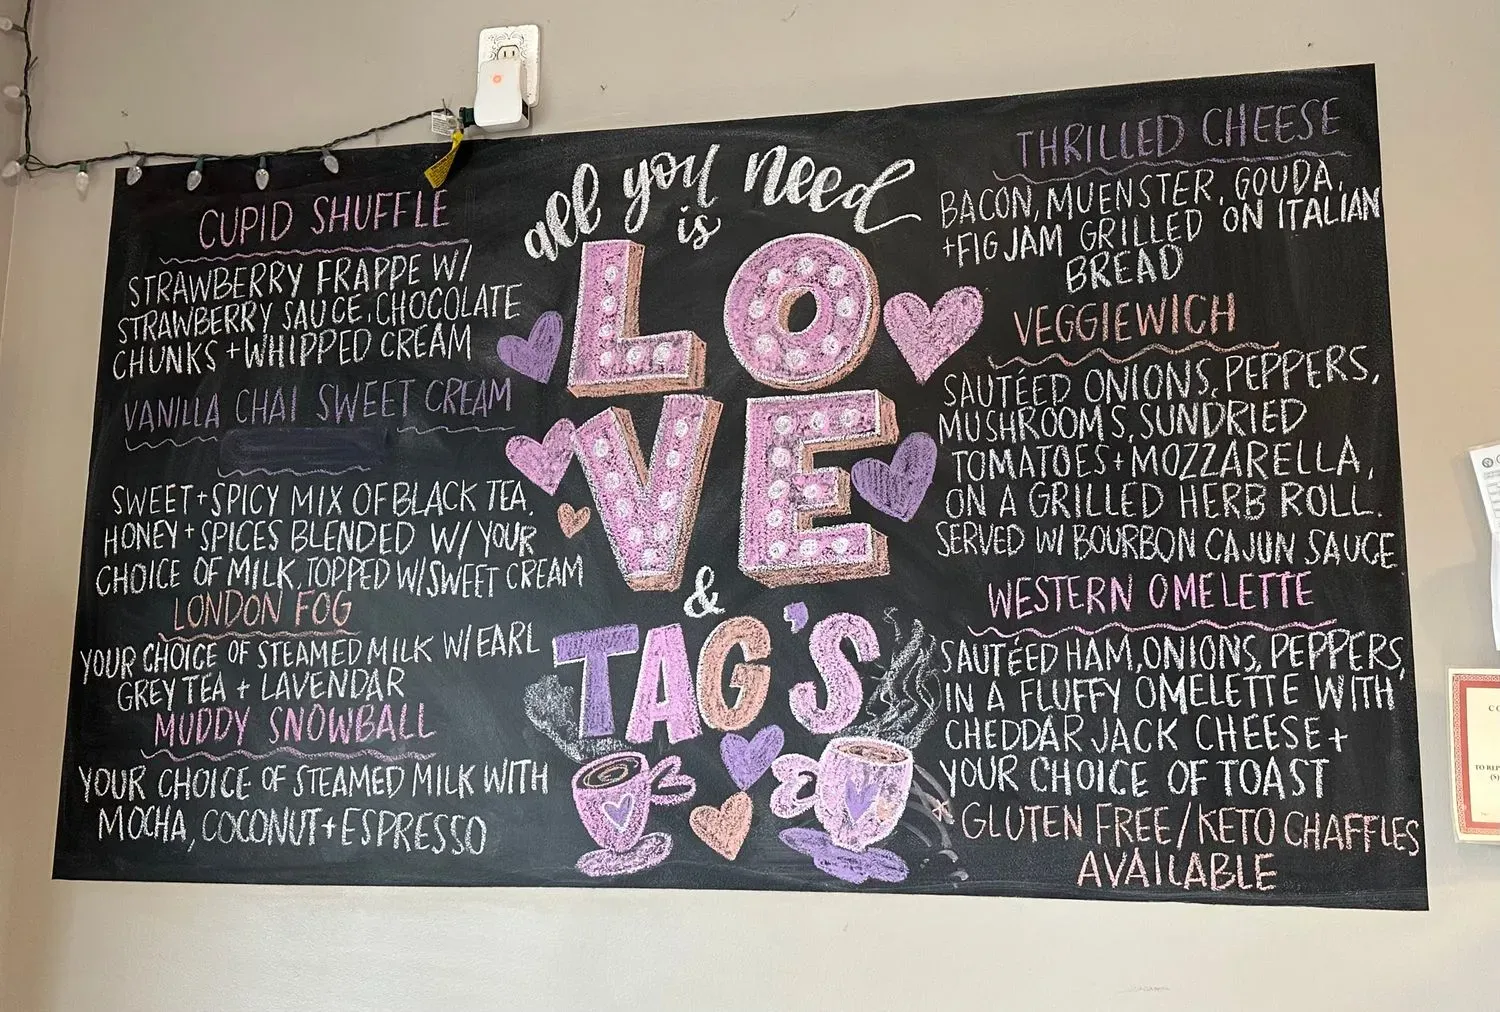 CUPID SHUFFLE
STRAWBERRY FRAPPE W/
STRAWBERRY SAUCE, CHOCOLATE
CHUNKS + WHIPPED CREAM
VANILLA CHAI SWEET CREAM
SWEET + SPICY MIX OF BLACK TEA,
HONEY + SPICES BLENDED W/ YOUR
CHOICE OF MILK, TOPPED W/ SWEET CREAM
LONDON FOG
YOUR CHOICE OF STEAMED MILK W/ EARL
GREY TEA + LAVENDAR
MUDDY SNOWBALL
YOUR CHOICE OF STEAMED MILK WITH
MOCHA, COCONUT + ESPRESSO
all you need
is
LO
VE
&
TAG'S
THRILLED CHEESE
BACON, MUENSTER, GOUDA,
+ FIG JAM GRILLED ON ITALIAN
BREAD
VEGGIEWICH
SAUTÉED ONIONS, PEPPERS,
MUSHROOMS, SUNDRIED
TOMATOES + MOZZARELLA,
ON A GRILLED HERB ROLL.
SERVED W/ BOURBON CAJUN SAUCE
WESTERN OMELETTE
SAUTÉED HAM, ONIONS, PEPPERS,
IN A FLUFFY OMELETTE WITH
CHEDDAR JACK CHEESE +
YOUR CHOICE OF TOAST
* GLUTEN FREE/KETO CHAFFLES
AVAILABLE